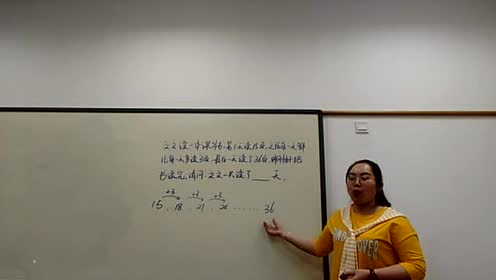 文文读一本课外书,第1天读15页,之后每一天都
比前一天多读3页,最后一天读了36页,刚好把
书读完,请问:文文一共读了____天.
+3 +3 +3
15, 18, 21, 24 ...... 36